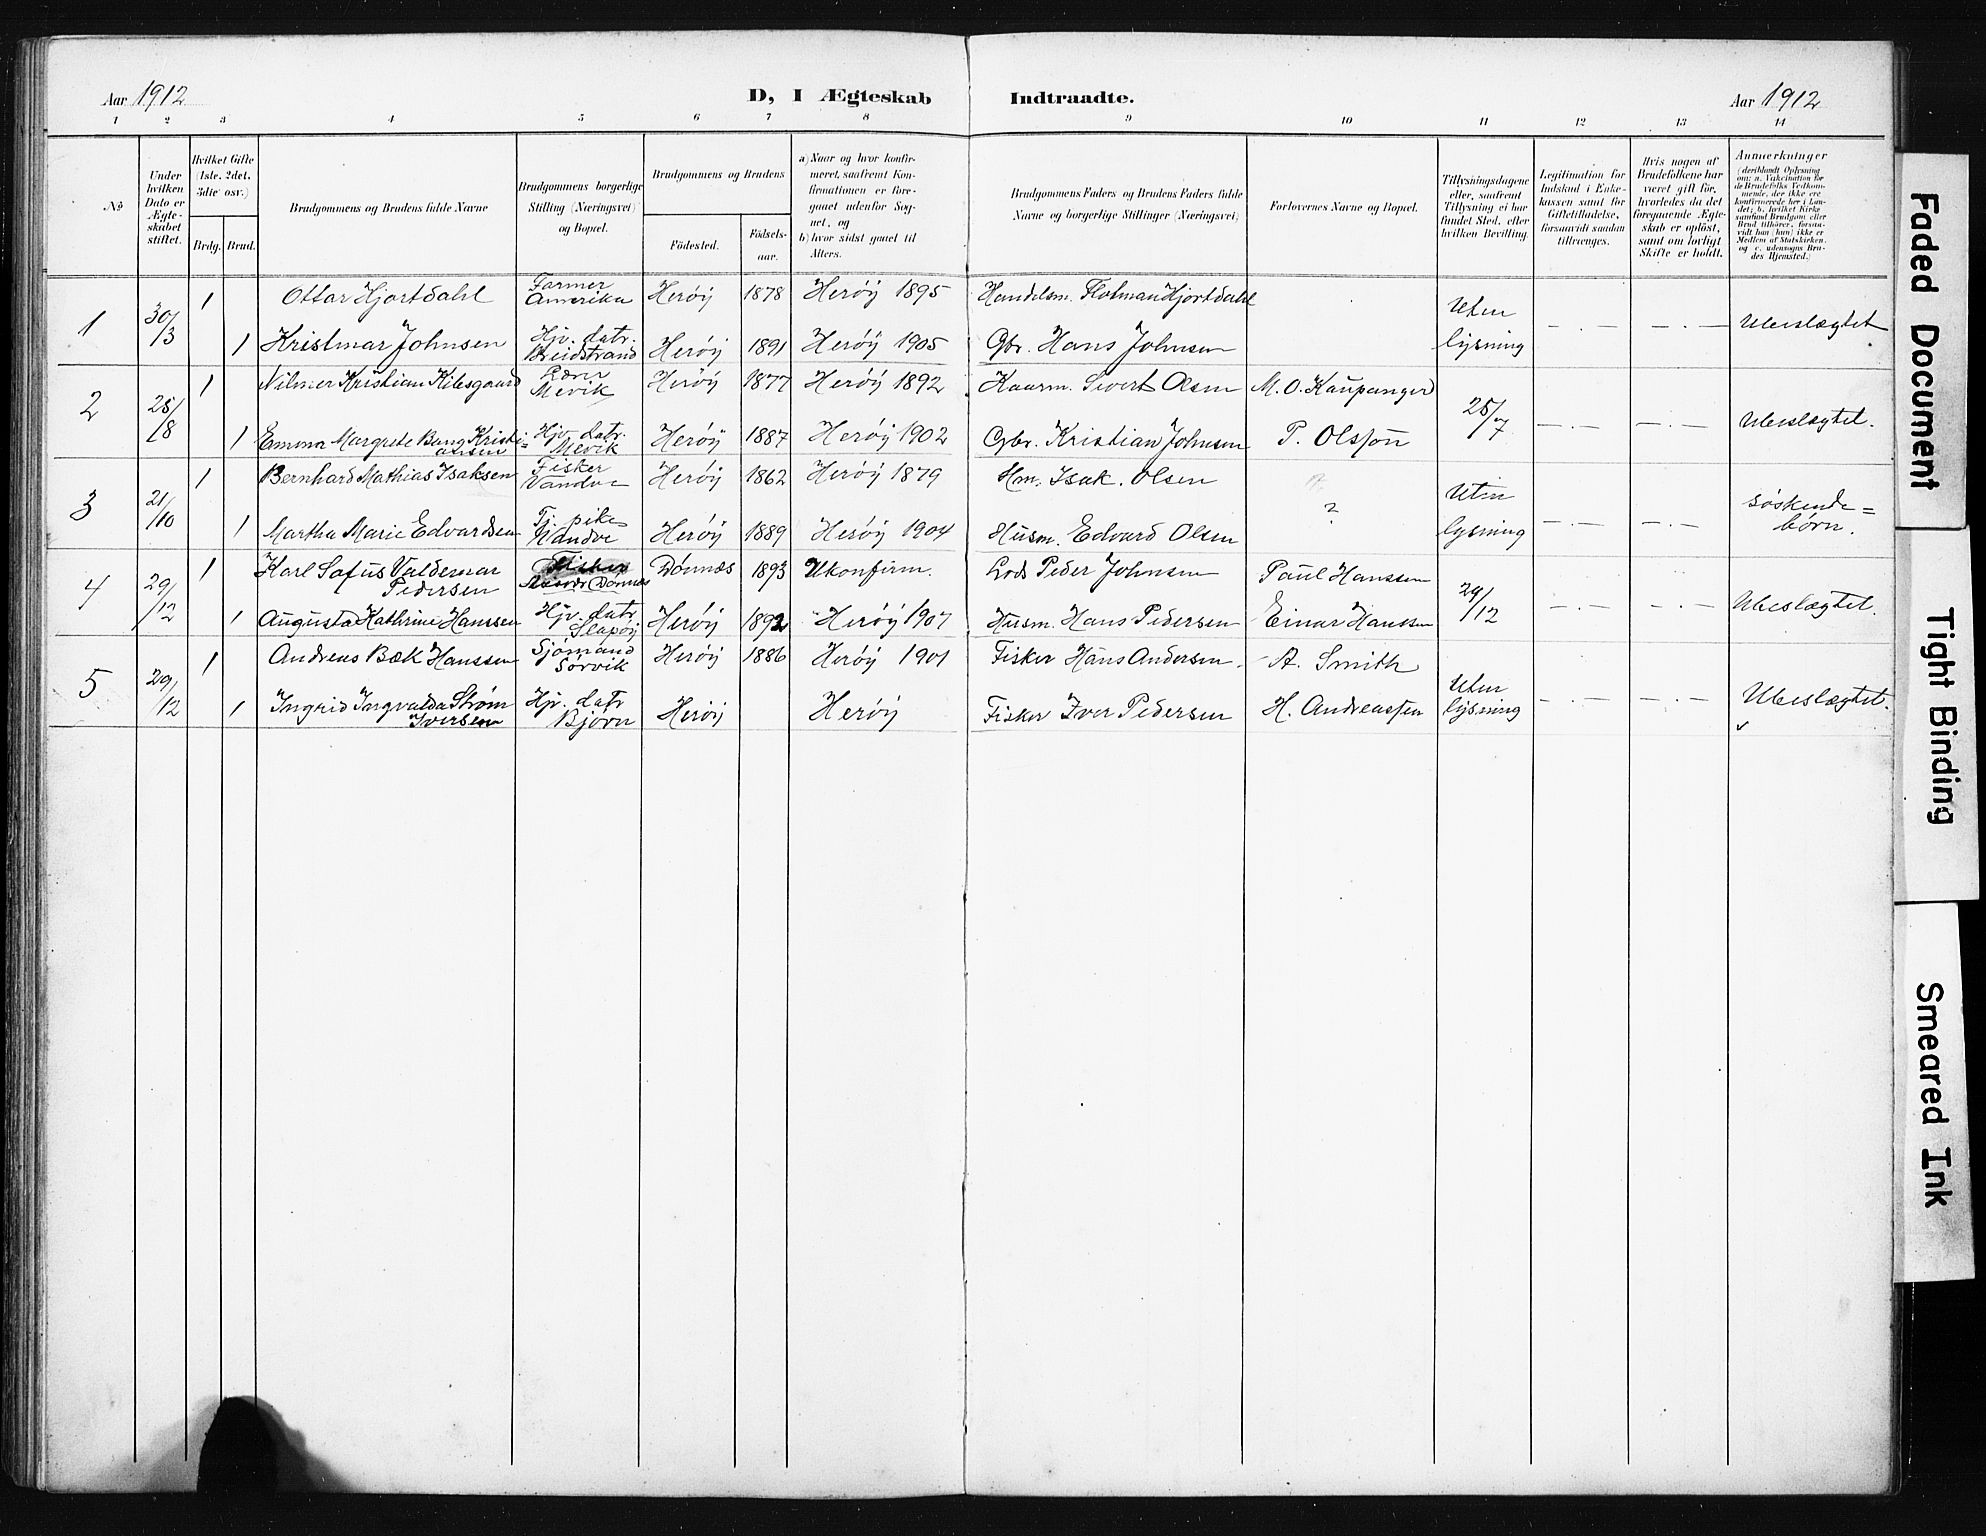 Aar 1912 D, I Ægteskab Indtraadte. Aar 1912
1 2 3 4 5 6 7 8 9 10 11 12 13 14
No
Under hvilken Dato er Ægteskabet stiftet.
Hvilket Gifte (1ste, 2det, 3die osv.)
Brdg. Brud.
Brudgommens og Brudens fulde Navne
Brudgommens borgerlige Stilling (Næringsvei) og Bopæl.
Brudgommens og Brudens
Födested. Födselsaar.
a) Naar og hvor konfirmeret, saafremt Konfirmationen er foregaaet udenfor Sognet, og
b) hvor sidst gaaet til Alters.
Brudgommens Faders og Brudens Faders fulde Navne og borgerlige Stillinger (Næringsvei)
Forlovernes Navne og Bopæl.
Tillysningsdagene eller, saafremt Tillysning ei har fundet Sted, efter hvilken Bevilling.
Legitimation for Indskud i Enkekassen samt for Giftetilladelse, forsaavidt saadan tiltrænges.
Hvis nogen af Brudefolkene har været gift før, hvorledes da det foregaaende Ægteskab er oplöst, samt om lovligt Skifte er holdt.
Anmerkninger (deriblandt Oplysning om: a. Vakcination for de Brudefolks Vedkommende, der ikke ere konfirmerede her i Landet; b. hvilket Kirkesamfund Brudgom eller Brud tilhører, forsaavidt han (hun) ikke er Medlem af Statskirken, og c. udensogns Brudes Hjemsted.)
1 30/3 1 Ottar Hjortdahl Farmer Amerika Herøy 1878 Herøy 1895 Handelsm. Hjortdahl Uten lysning —.— —.— Ubeslægtet
1 Kristmar Johnsen Hjv. datr. Breidstrand Herøy 1891 Herøy 1905 Gbr. Hans Johnsen
2 25/8 1 Kristian Kilsgaard Mevik Herøy 1877 Herøy 1892 Kaarm. Sivert Olsen M. O. Kaupanger 25/7 —.— —.— Ubeslægtet.
1 Emma Margrete Bang Kristiansen Hjv. datr. Mevik Herøy 1887 Herøy 1902 Gbr. Kristian Johnsen P. Olsson
3 21/10 1 Bernhard Mathias Isaksen Fisker Vandve Herøy 1862 Herøy 1879 Hm. Isak. Olsen ? Uten lysning —.— —.— Søskende=børn.
1 Martha Marie Edvardsen Tj. pike Vandve Herøy 1889 Herøy 1904 Husm. Edvard Olsen
4 29/12 1 Karl Sofus Valdemar Pedersen Fisker Dønnes Dønnæs 1893 Ukonfirm. Lods Peder Johnsen Paul Hanssen 29/12 —.— —.— Ubeslægtet.
1 Augusta Kathrine Hanssen Hjv. datr. Slapøy Herøy 1892 Herøy 1907 Husm. Hans Pedersen Einar Hanssen
5 29/12 1 Andreas Bæk Hanssen Sjømand Sørvik Herøy 1886 Herøy 1901 Fisker Hans Andersen. A. Smith Uten lysning —.— —.— Ubeslægtet.
1 Ingrid Ingvalda Strøm Iversen Hjv. datr Bjørn Herøy Herøy Fisker Iver Pedersen H. Andreassen
Faded Document
Tight Binding
Smeared Ink